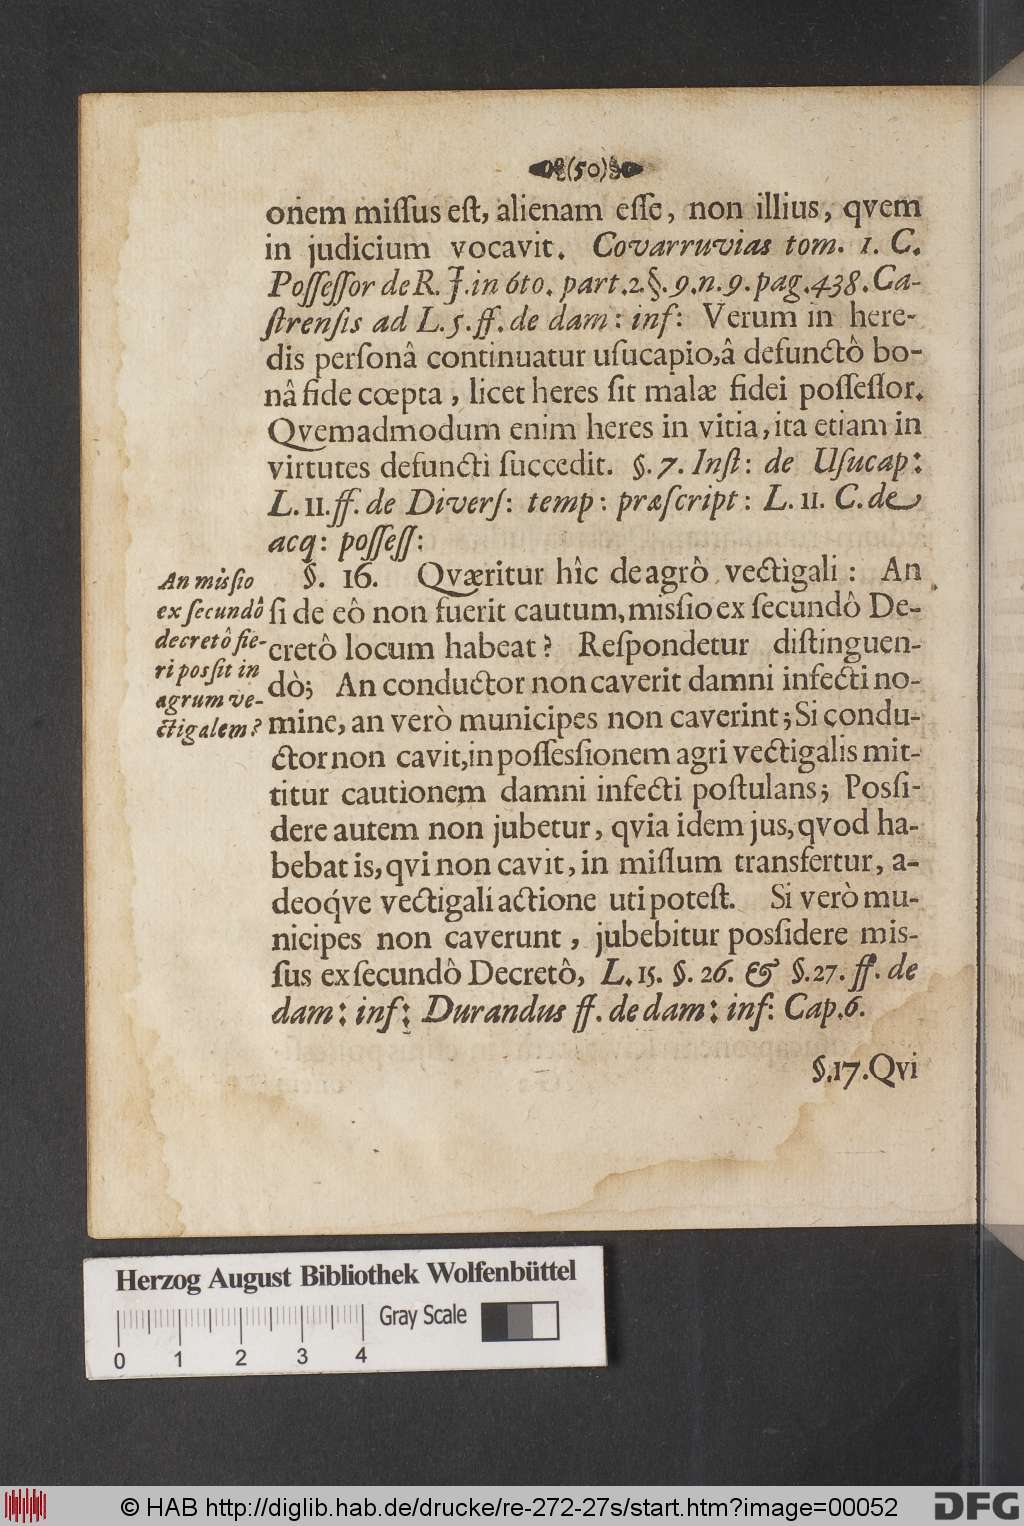 (50)
onem miſſus eſt, alienam eſſe, non illius, qvem
in judicium vocavit. Covarruvias tom. 1. C.
Poſſeſſor de R. J. in 6to. part. 2. §. 9. n. 9. pag. 438. Ca-
ſtrenſis ad L. 5. ff. de dam: inf: Verum in here-
dis perſonâ continuatur uſucapio, â defunctô bo-
nâ fide cœpta, licet heres ſit malæ fidei poſſeſſor.
Qvemadmodum enim heres in vitia, ita etiam in
virtutes defuncti ſuccedit. §. 7. Inſt: de Uſucap:
L. 11. ff. de Diverſ: temp: præſcript: L. 11. C. de
acq: poſſeſſ:
An misſio
ex ſecundô
decretô fie-
ri posſit in
agrum ve-
ctigalem?
§. 16. Qværitur hîc de agrô vectigali: An
ſi de eô non fuerit cautum, misſio ex ſecundô De-
cretô locum habeat? Reſpondetur diſtinguen-
dò; An conductor non caverit damni infecti no-
mine, an verò municipes non caverint; Si condu-
ctor non cavit, in poſſesſionem agri vectigalis mit-
titur cautionem damni infecti poſtulans; Posſi-
dere autem non jubetur, qvia idem jus, qvod ha-
bebat is, qvi non cavit, in miſſum transfertur, a-
deoq́ve vectigali actione uti poteſt. Si verò mu-
nicipes non caverunt, jubebitur posſidere mis-
ſus ex ſecundô Decretô, L. 15. §. 26. & §. 27. ff. de
dam: inf: Durandus ff. de dam: inf: Cap. 6.
§. 17. Qvi
Herzog August Bibliothek Wolfenbüttel
Gray Scale
0 1 2 3 4
© HAB http://diglib.hab.de/drucke/re-272-27s/start.htm?image=00052
DFG